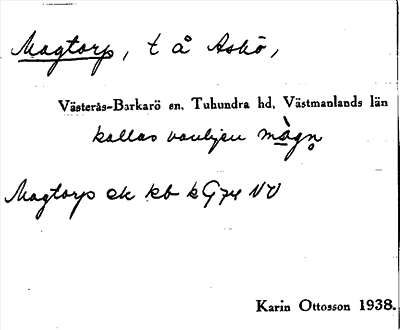 Magtorp, t å Askö,
Västerås-Barkarö sn. Tuhundra hd. Västmanlands län
kallas vanligen màgn̥
Magtorp ek kb k G74 NV
Karin Ottosson 1938.